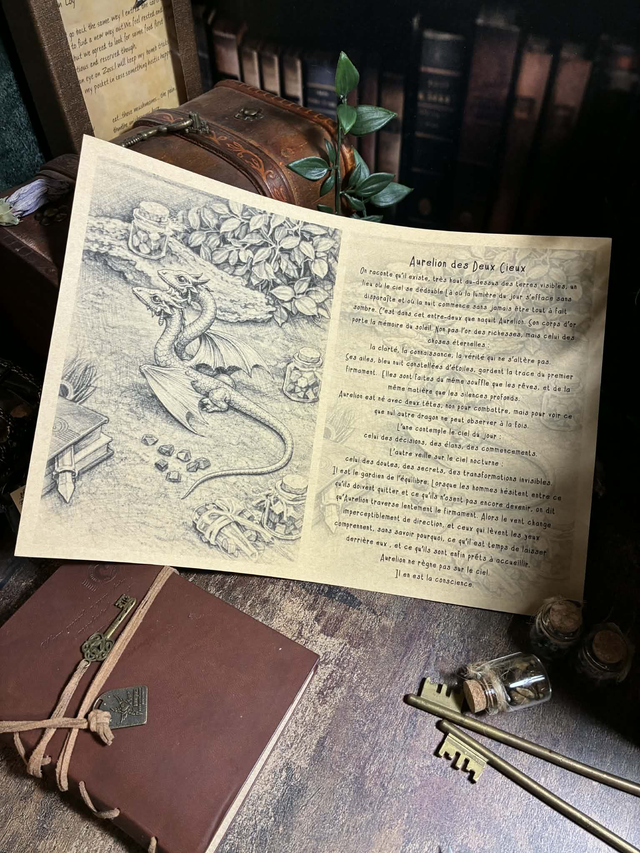 pack the same way I
to find a new way out. We feel rested and
but we agreed to look for some food first
tions and reserved though.
eye on Zeo. I will keep my
my pocket in case something
Aurelion des Deux Cieux
On raconte qu'il existe, très haut au-dessus des terres visibles, un
lieu où le ciel se dédouble (là où la lumière du jour s'efface sans
disparaître et où la nuit commence sans jamais être tout à fait
sombre. C'est dans cet entre-deux que naquit Aurelion. Son corps d'or
porte la mémoire du soleil. Non pas l'or des richesses, mais celui des
choses éternelles :
la clarté, la connaissance, la vérité qui ne s'altère pas.
Ses ailes, bleu nuit constellées d'étoiles, gardent la trace du premier
firmament. Elles sont faites du même souffle que les rêves, et de la
même matière que les silences profonds.
Aurelion est né avec deux têtes, non pour combattre, mais pour voir ce
que nul autre dragon ne peut observer à la fois.
L'une contemple le ciel du jour :
celui des décisions, des élans, des commencements.
L'autre veille sur le ciel nocturne :
celui des doutes, des secrets, des transformations invisibles.
Il est le gardien de l'équilibre. Lorsque les hommes hésitent entre ce
qu'ils doivent quitter et ce qu'ils n'osent pas encore devenir, on dit
qu'Aurelion traverse lentement le firmament. Alors le vent change
imperceptiblement de direction, et ceux qui lèvent les yeux
comprennent, sans savoir pourquoi, ce qu'il est temps de laisser
derrière eux , et ce qu'ils sont enfin prêts à accueillir.
Aurelion ne règne pas sur le ciel.
Il en est la conscience.